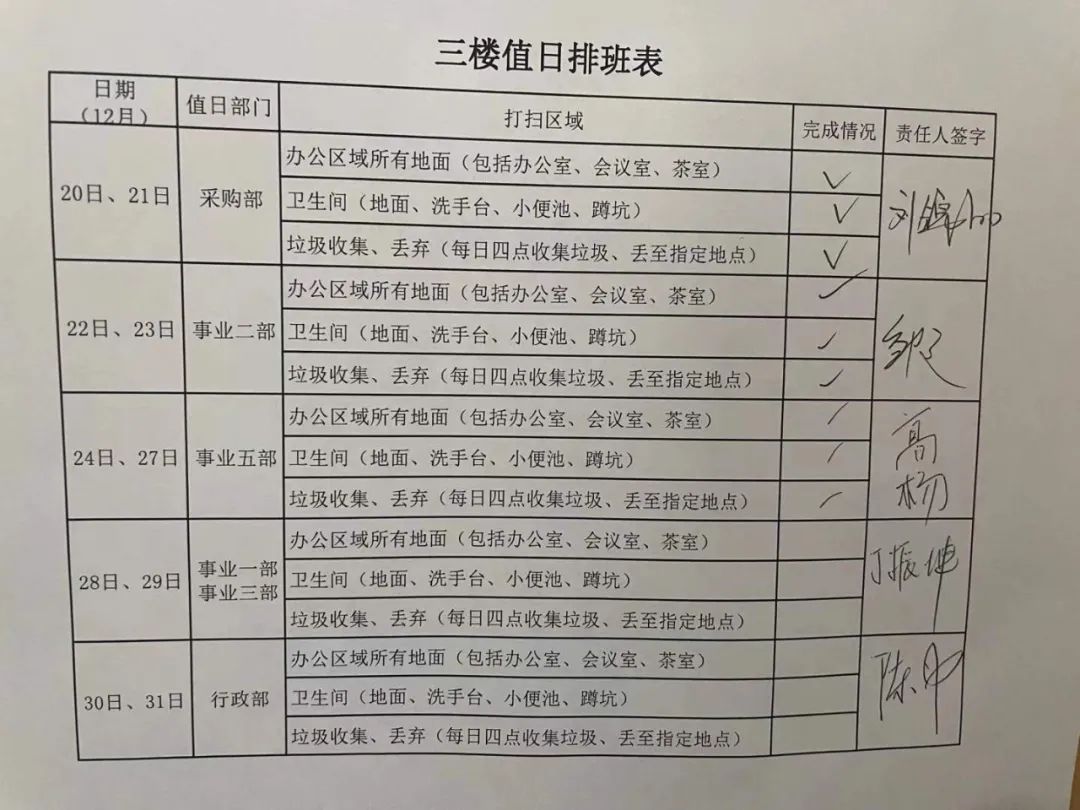 三楼值日排班表
日期
(12月)
值日部门
打扫区域
完成情况
责任人签字
20日、21日
采购部
办公区域所有地面（包括办公室、会议室、茶室）
卫生间（地面、洗手台、小便池、蹲坑）
垃圾收集、丢弃（每日四点收集垃圾、丢至指定地点）
刘
22日、23日
事业二部
办公区域所有地面（包括办公室、会议室、茶室）
卫生间（地面、洗手台、小便池、蹲坑）
垃圾收集、丢弃（每日四点收集垃圾、丢至指定地点）
24日、27日
事业五部
办公区域所有地面（包括办公室、会议室、茶室）
卫生间（地面、洗手台、小便池、蹲坑）
垃圾收集、丢弃（每日四点收集垃圾、丢至指定地点）
高
杨
28日、29日
事业一部
事业三部
办公区域所有地面（包括办公室、会议室、茶室）
卫生间（地面、洗手台、小便池、蹲坑）
垃圾收集、丢弃（每日四点收集垃圾、丢至指定地点）
丁振坤
30日、31日
行政部
办公区域所有地面（包括办公室、会议室、茶室）
卫生间（地面、洗手台、小便池、蹲坑）
垃圾收集、丢弃（每日四点收集垃圾、丢至指定地点）
陈中